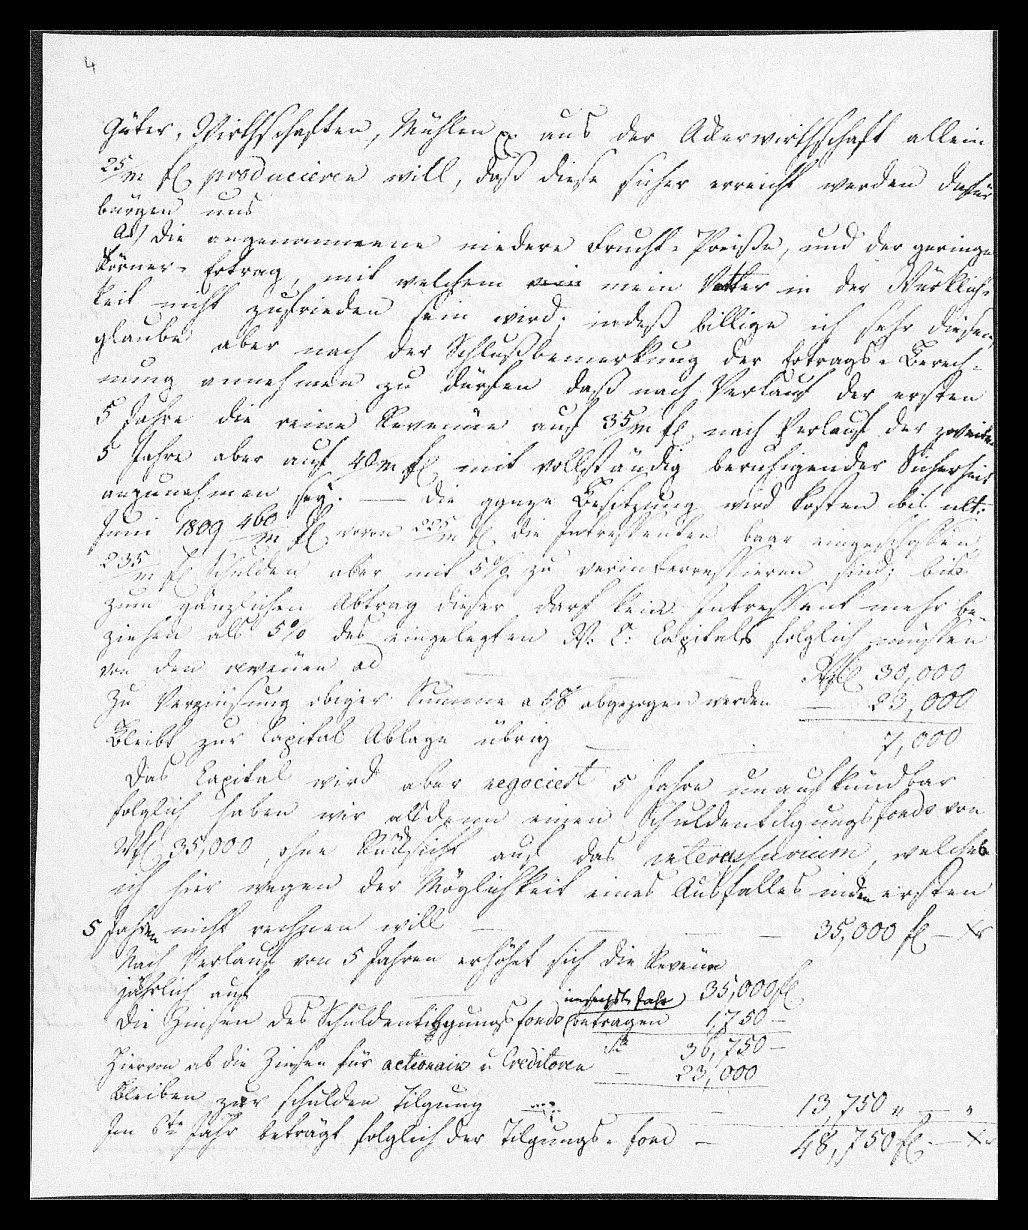 4
Güter, Wirthschaften, Mühlen pp aus der Ackerwirthschaft allein
25/m fl produciren will, daß diese sicher erreicht werden dafür
bürgen uns
Ad) die angenommene niedere Frucht-Preiße, und der geringe
Körner-Ertrag, mit welchem mein Vetter in der Würklich-
keit nicht zufrieden seyn wird; indeß billige ich sehr diesen,
glaube aber nach der Schlußbemerkung der Ertrags-Berech-
nung annehmen zu dürfen daß nach Verlauf der ersten
5 Jahre die reine Revenüe auf 35/m fl nach Verlauf der zweiten
5 Jahre aber auf 40/m fl mit vollständig beruhigender Sicherheit
anzunehmen sey. — Die ganze Besitzung wird kosten bis ult:
Juni 1809 460/m fl wovon 225/m fl die Intressenten baar eingeschossen
235/m fl Schulden aber mit 5% zu verinterressieren sind; bis
zum gänzlichen Abtrag dieser, darf kein Intressent mehr be
ziehen als 5% des eingelegten Capitals folglich müssten
von den revenüen ad 30,000
zu Verzinsung obiger Summe a 5% abgezogen werden — 23,000
Bleibt zur Capital Ablage übrig — 7,000
Das Capital wird aber negociert 5 Jahre unaufkündbar
folglich haben wir alsdenn einen Schuldentilgungsfonds von
35,000, ohne Rücksicht auf das interusurium, welches
ich hier wegen der Möglichkeit eines Ausfalles in den ersten
5 Jahren nicht rechnen will — 35,000 fl — Xr
Nach Verlauf von 5 Jahren erhöhet sich die Revenüe
jährlich auf — 35,000 fl
Die Zinsen des Schuldentilgungsfonds (im sechste Jahr) betragen 1,750 —
36,750 —
Hievon ab die Zinsen für actionair u Creditoren — 23,000
Bleiben zur Schulden Tilgung — 13,750 " — "
Im 6te Jahr beträgt folglich der Tilgungs-fond — 48,750 fl — Xr